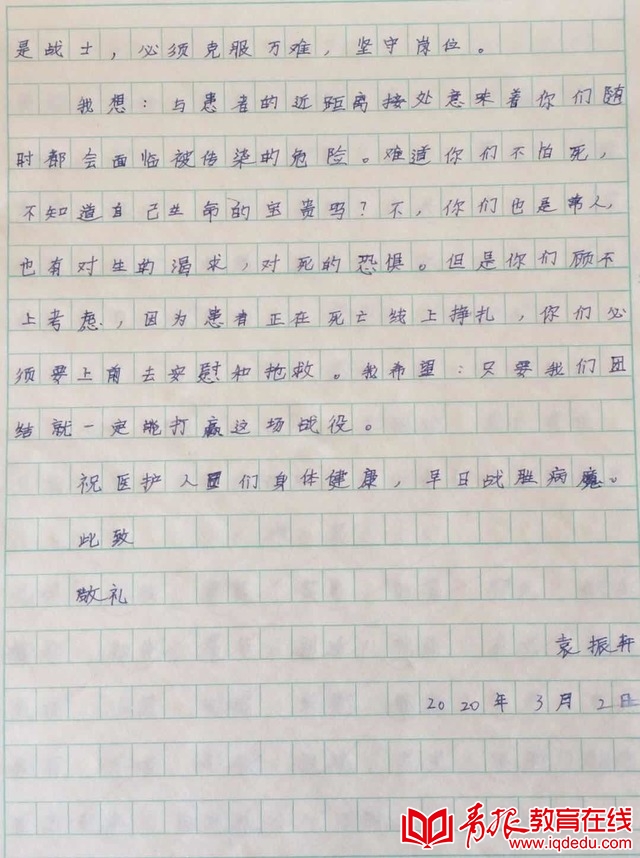 是战士，必须克服万难，坚守岗位。
我想：与患者的近距离接处意味着你们随
时都会面临被传染的危险。难道你们不怕死，
不知道自己生命的宝贵吗？不，你们也是常人，
也有对生的渴求，对死的恐惧。但是你们顾不
上考虑，因为患者正在死亡线上挣扎，你们必
须要上前去安慰和抢救。我希望：只要我们团
结就一定能打赢这场战役。
祝医护人员们身体健康，早日战胜病魔。
此致
敬礼
袁振轩
2020年3月2日
青报教育在线
www.iqdedu.com